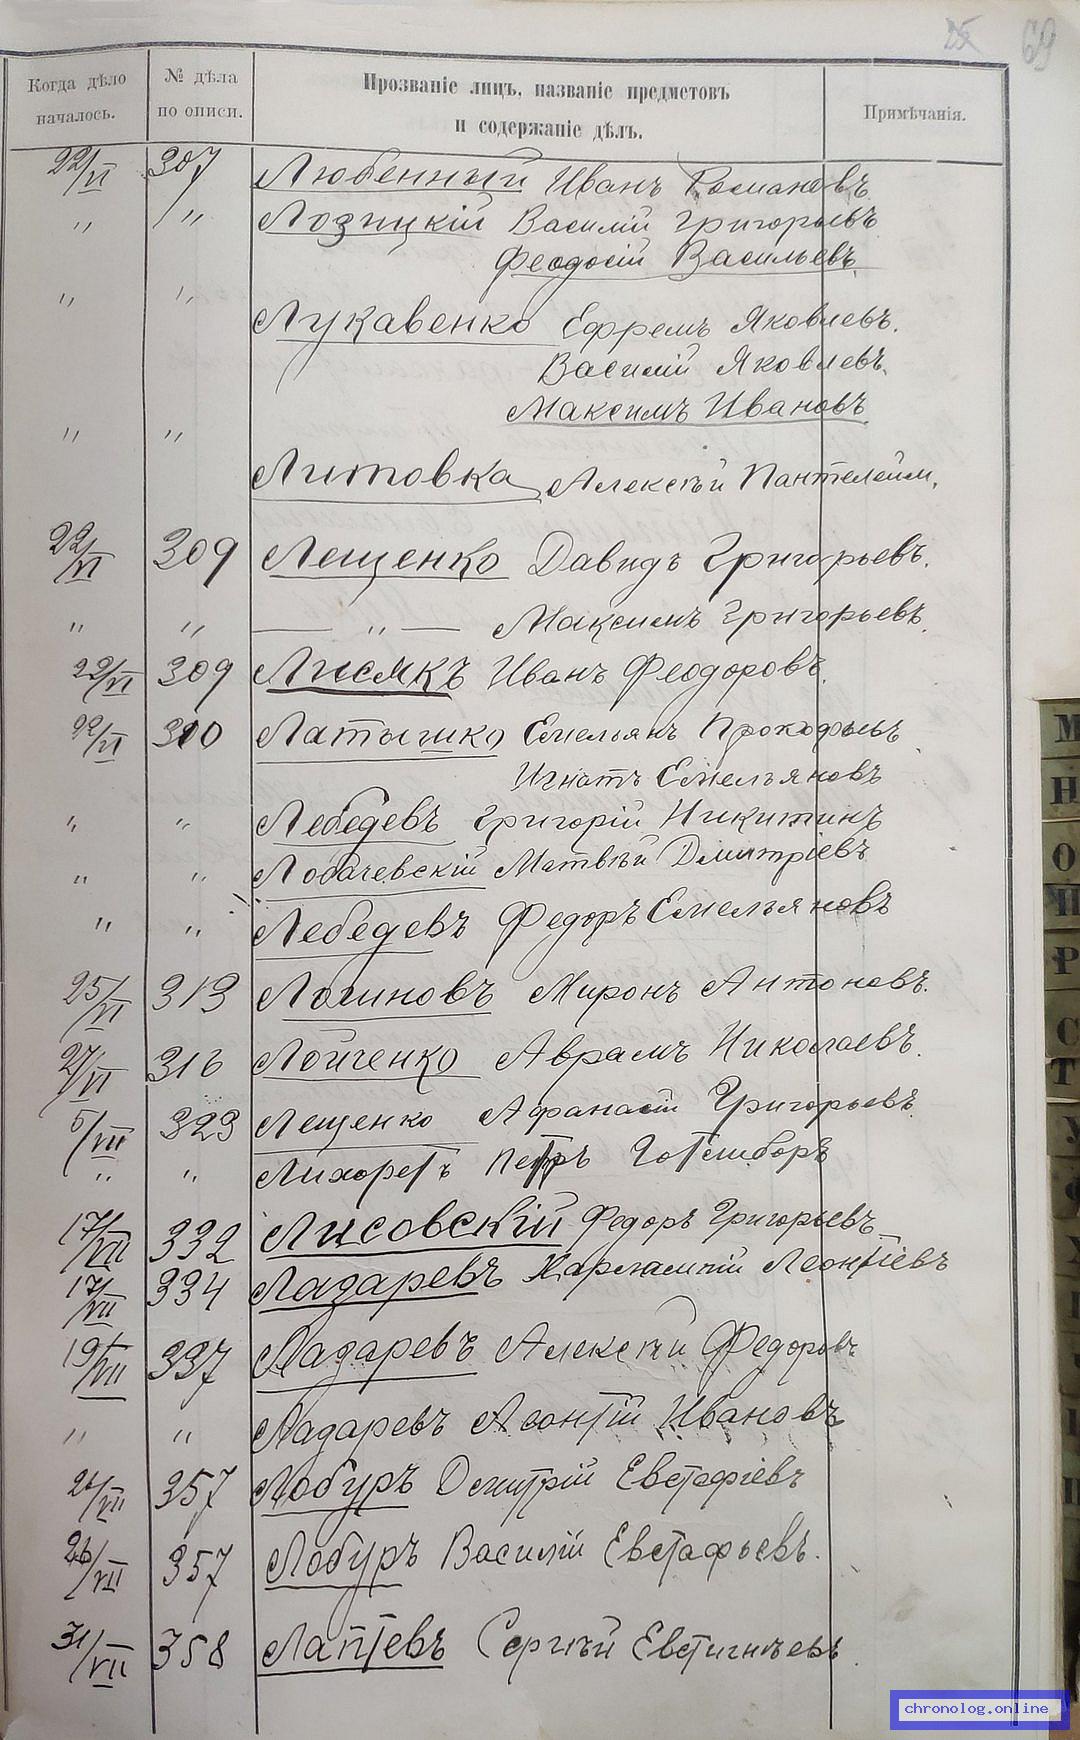 69
Когда дѣло началось.
№ дѣла по описи.
Прозваніе лицъ, названіе предметовъ и содержаніе дѣлъ.
Примѣчанія.
22/VI 307 Любенный Иванъ Романовъ
" " Лозицкій Василій Григорьевъ
Феодосій Васильевъ
" " Лукавенко Ефремъ Яковлевъ.
Василій Яковлевъ.
Максимъ Ивановъ
" " Литовка Алексѣй Пантелейм.
22/VI 309 Лещенко Давидъ Григорьевъ.
" " — " — Максимъ Григорьевъ.
22/VI 309 Лисякъ Иванъ Феодоровъ.
22/VI 310 Латышко Емельянъ Прокофьевъ
Игнатъ Емельяновъ
" " Лебедевъ Григорій Никитинъ
" " Лобачевскій Матвѣй Дмитріевъ
" " Лебедевъ Федоръ Емельяновъ
25/VI 313 Логиновъ Миронъ Антоновъ.
27/VI 316 Лойченко Аврамъ Николаевъ.
5/VII 323 Лещенко Афанасій Григорьевъ.
" " Лихоретъ Петръ Готлиборъ
17/VII 332 Лисовскій Федоръ Григорьевъ
17/VII 334 Лазаревъ Харлампій Леонтіевъ
19/VII 337 Лазаревъ Алексѣй Федоровъ
" " Лазаревъ Леонтій Ивановъ
26/VII 357 Лобуръ Дмитрій Евстафіевъ
26/VII 357 Лобуръ Василій Евстафьевъ.
31/VII 358 Лаптевъ Сергѣй Евстигнѣевъ.
М
Н
О
П
Р
С
Т
У
chronolog.online